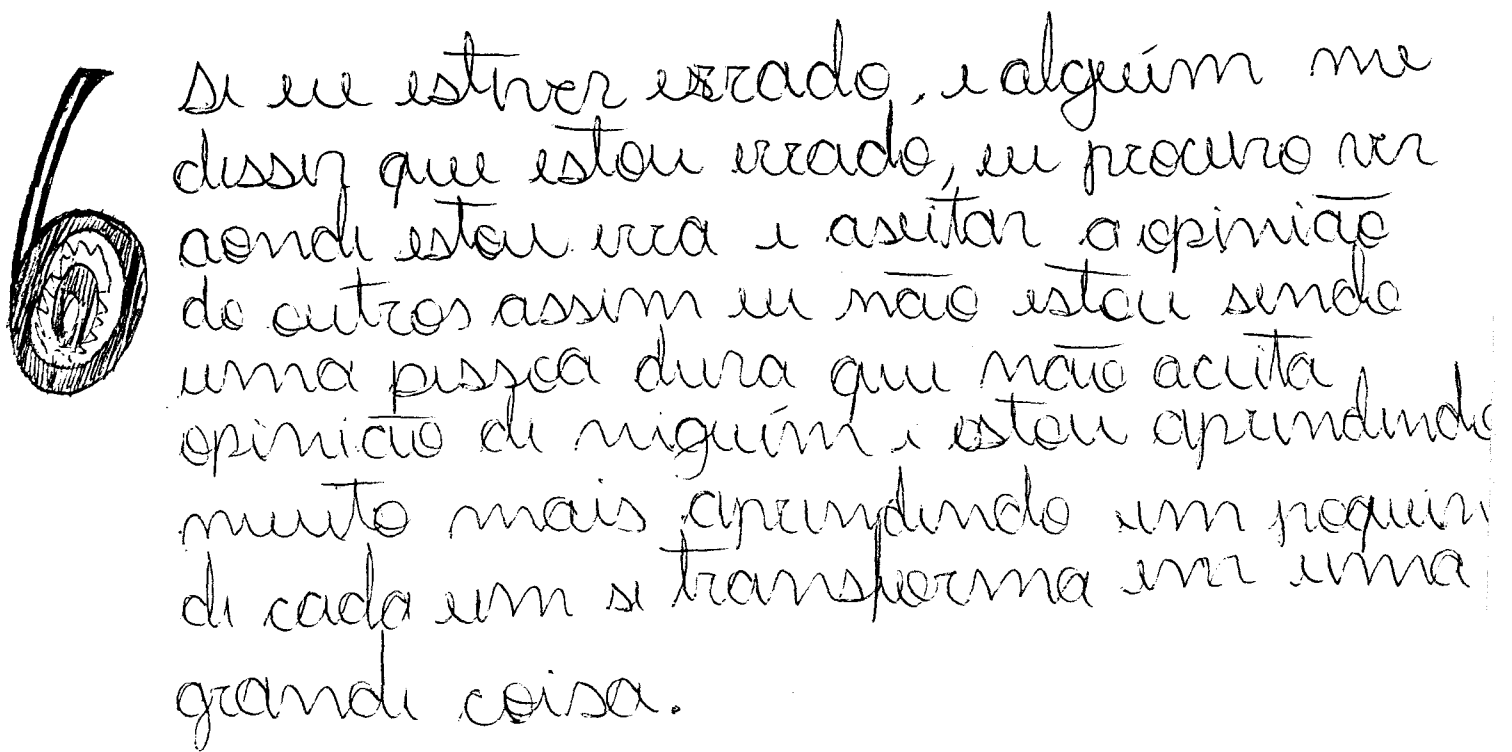 6
Se eu estiver errado, e alguém me
disser que estou errado, eu procuro ver
aonde estou erra e aseitar a opinião
do outros assim eu não estou sendo
uma pessoa dura que não aceita
opinião de niguém e estou aprendendo
muito mais aprendendo um poquin
de cada um se transforma em uma
grande coisa.